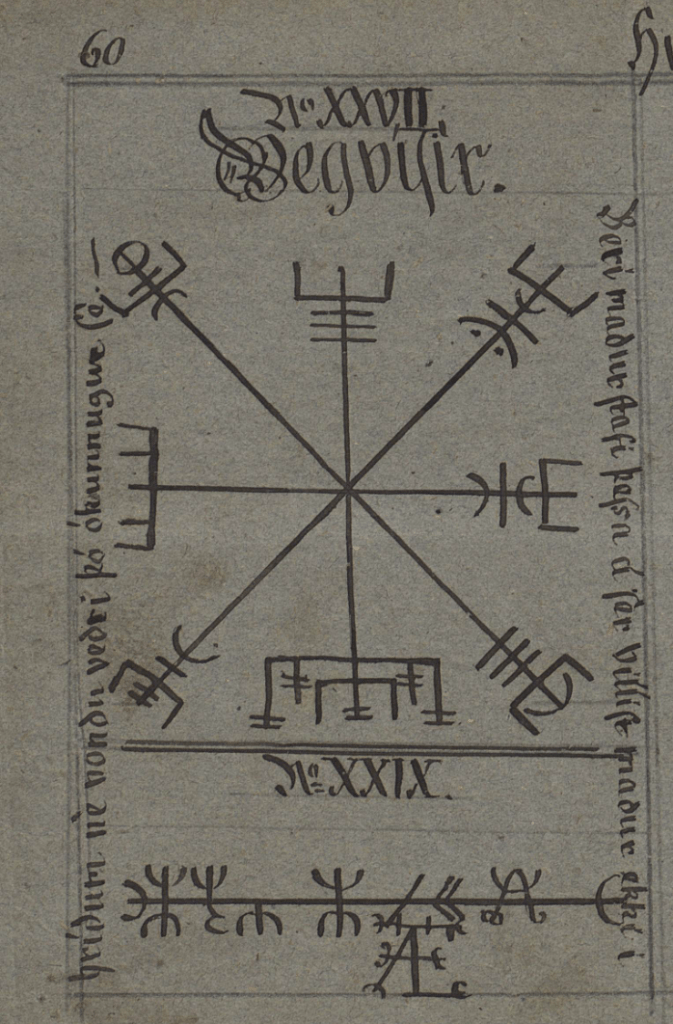 60
Nº XXVII.
Vegvísir.
Beri maður stafi þessa á sér villist maður ekki i
hríðum né vondu veðri þó ókunnugur sé. —
Nº XXIX.